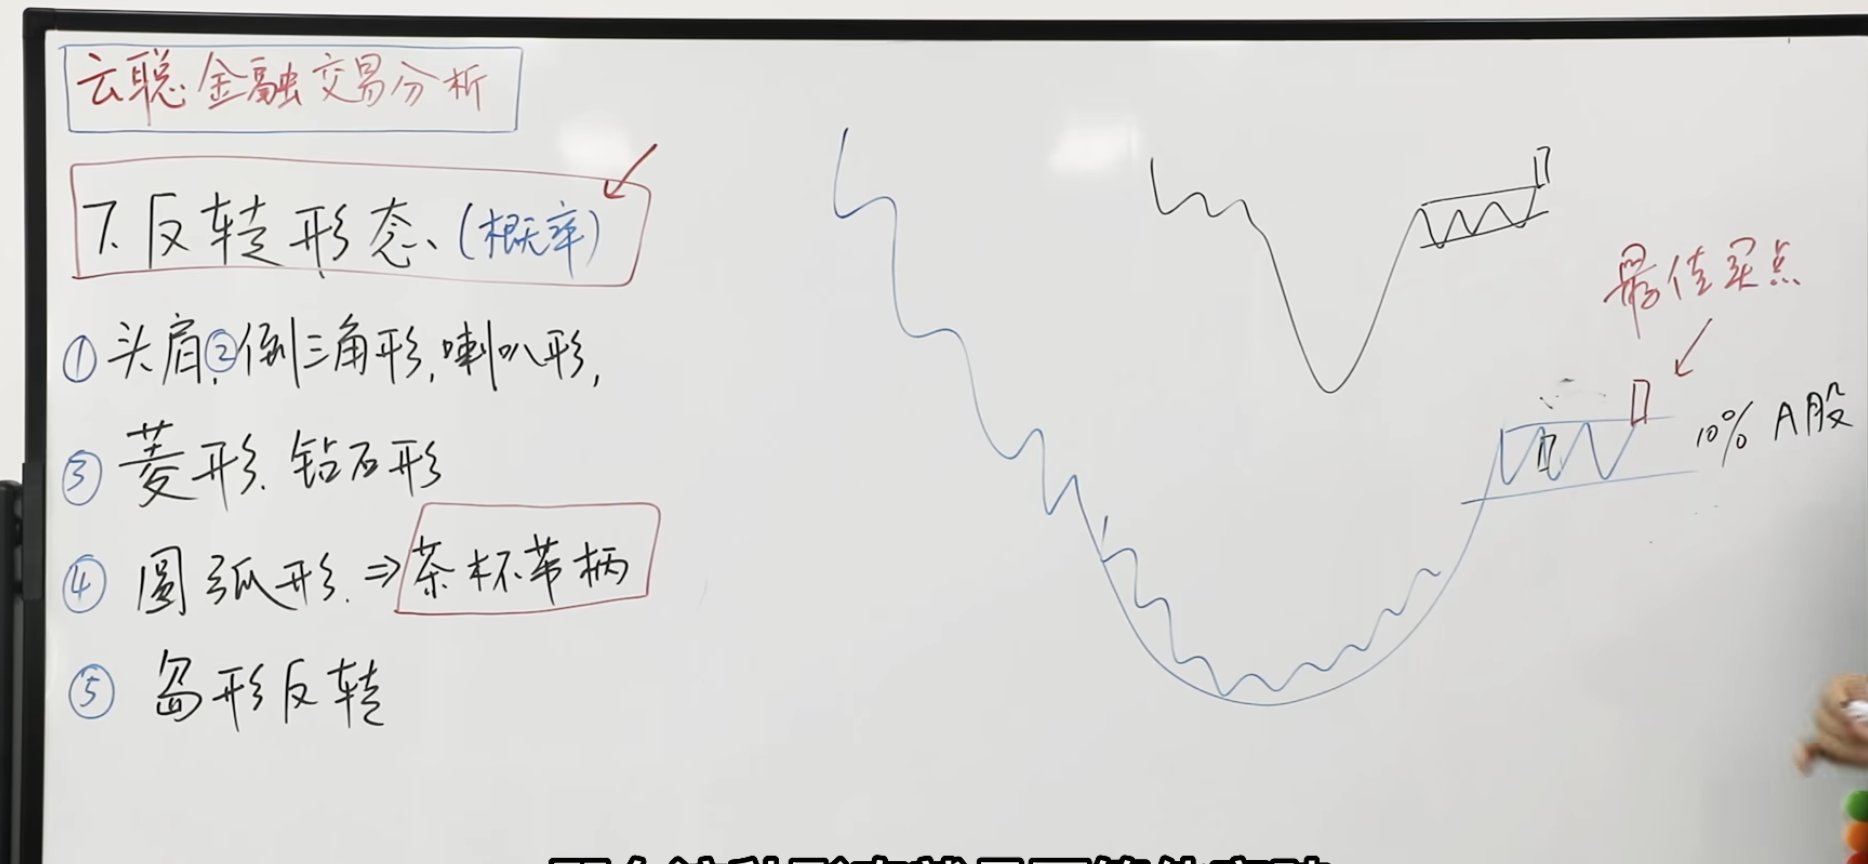 云聪金融交易分析
7.反转形态、(概率)
①头肩,②倒三角形,喇叭形,
③菱形.钻石形
④圆弧形.⇒茶杯带柄
⑤岛形反转
最佳买点
10% A股